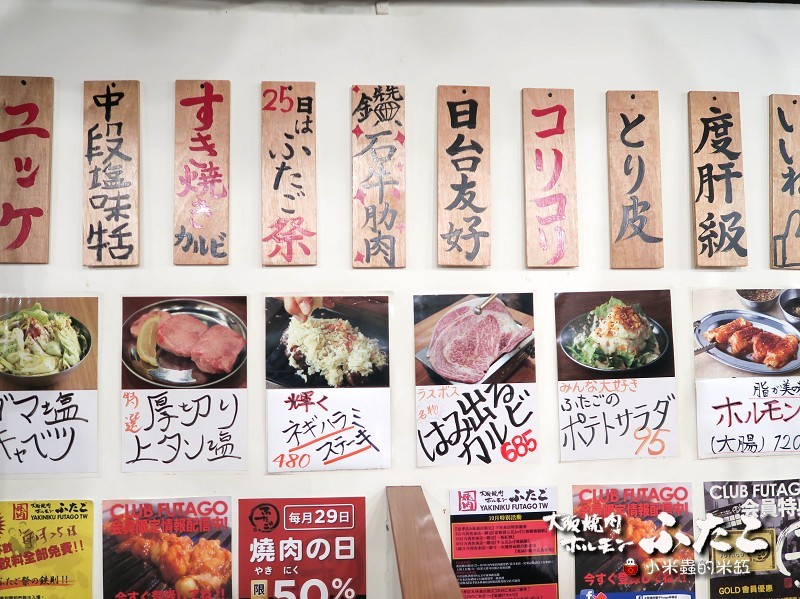 ユッケ
中段塩味牾
すき焼き
カルビ
25日は
ふたご祭
鑽石牛肋肉
日台友好
コリコリ
とり皮
度肝級
いいね
ゴマ塩
キャベツ
特選
厚切り
上タン塩
輝く
ネギハラミ
ステーキ
480
ラスボス
名物
はみ出る
カルビ
685
みんな大好き
ふたごの
ポテトサラダ
95
脂が美味
ホルモン
(大腸) 120
ふたご
YAKINIKU FUTAGO TW
飲料全部免費!!
ふたご祭の鉄則!!
CLUB FUTAGO
会員限定情報配信中!
今すぐ
毎月29日
焼肉の日
やき にく
限
50%
ふたご
YAKINIKU FUTAGO TW
10月特別活動
CLUB FUTAGO
会員限定情報配信中!
今すぐ
CLUB FUTAGO
会員特
GOLD会員優惠
大阪焼肉
ホルモン
ふたご
小米蟲的米缸